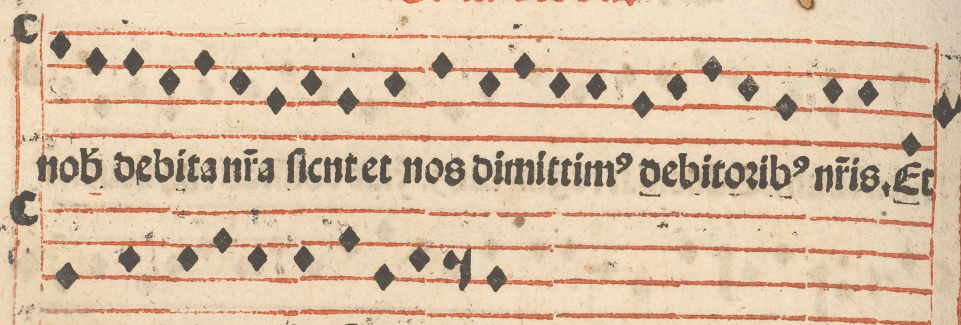 nob̄ debita nr̄a sicut et nos dimittimꝰ debitoribꝰ nr̄is. Et